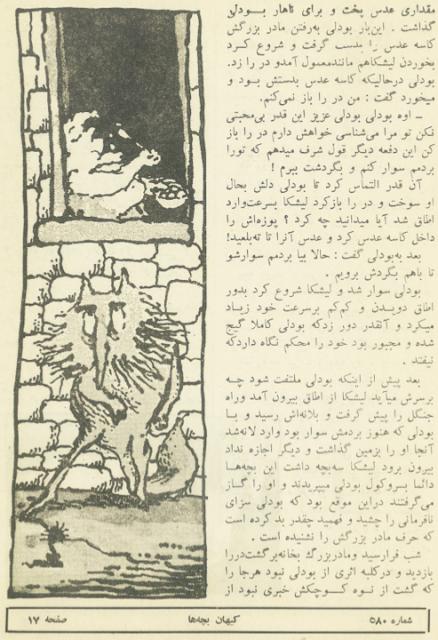 مقداری عدس پخت و برای ناهار بـــودلی
گذاشت . این‌بار بودلی به‌رفتن مادر بزرگش
کاسه عدس را بدست گرفت و شروع کـرد
بخوردن لیشکاهم مانندمعمول آمدو در را زد.
بودلی درحالیکه کاسه عدس بدستش بــود و
میخورد گفت : من در را باز نمی‌کنم.
ـ اوه بودلی بودلی عزیز این قدر بی‌محبتی
نکن تو مرا می‌شناسی خواهش دارم در را باز
کن این دفعه دیگر قول شرف میدهم که تورا
بردمم سوار کنم و بگردشت ببرم !
آن قدر التماس کرد تا بودلی دلش بحال
او سوخت و در را بازکرد لیشکا بسرعت‌وارد
اطاق شد آیا میدانید چه کرد ؟ پوزه‌اش را
داخل کاسه عدس کرد و عدس آنرا تا ته‌بلعید!
بعد به‌بودلی گفت : حالا بیا بردمم سوارشو
تا باهم بگردش برویم .
بودلی سوار شد و لیشکا شروع کرد بدور
اطاق دویــدن و کم‌کم برسرعت خود زیــاد
میکرد و آنقدر دور زدکه بودلی کاملا گیج
شده و مجبور بود خود را محکم نگاه داردکه
نیفتد .
بعد پیش از اینکه بودلی ملتفت شود چــه
برسرش میآید لیشکا از اطاق بیرون آمد وراه
جنگل را پیش گرفت و بلانه‌اش رسید و بــا
بودلی که هنوز بردمش سوار بود وارد لانه‌شد
آنجا او را بزمین گذاشت و دیگر اجازه نداد
بیرون برود لیشکا سه‌بچه داشت این بچه‌هـا
دائما بسروکول بودلی میپریدند و او را گــاز
می‌گرفتند دراین موقع بود که بودلی سزای
نافرمانی را چشید و فهمید چقدر بد کرده است
که حرف مادر بزرگش را نشنیده است .
شب فرارسید ومادربزرگ بخانه‌برگشت‌دررا
بازدید و درکلبه اثری از بودلی نبود هرجا را
که گشت از نــوه کــوچکش خبری نبود از
شماره ۵۸۰
کیهان بچه‌ها
صفحه ۱۷